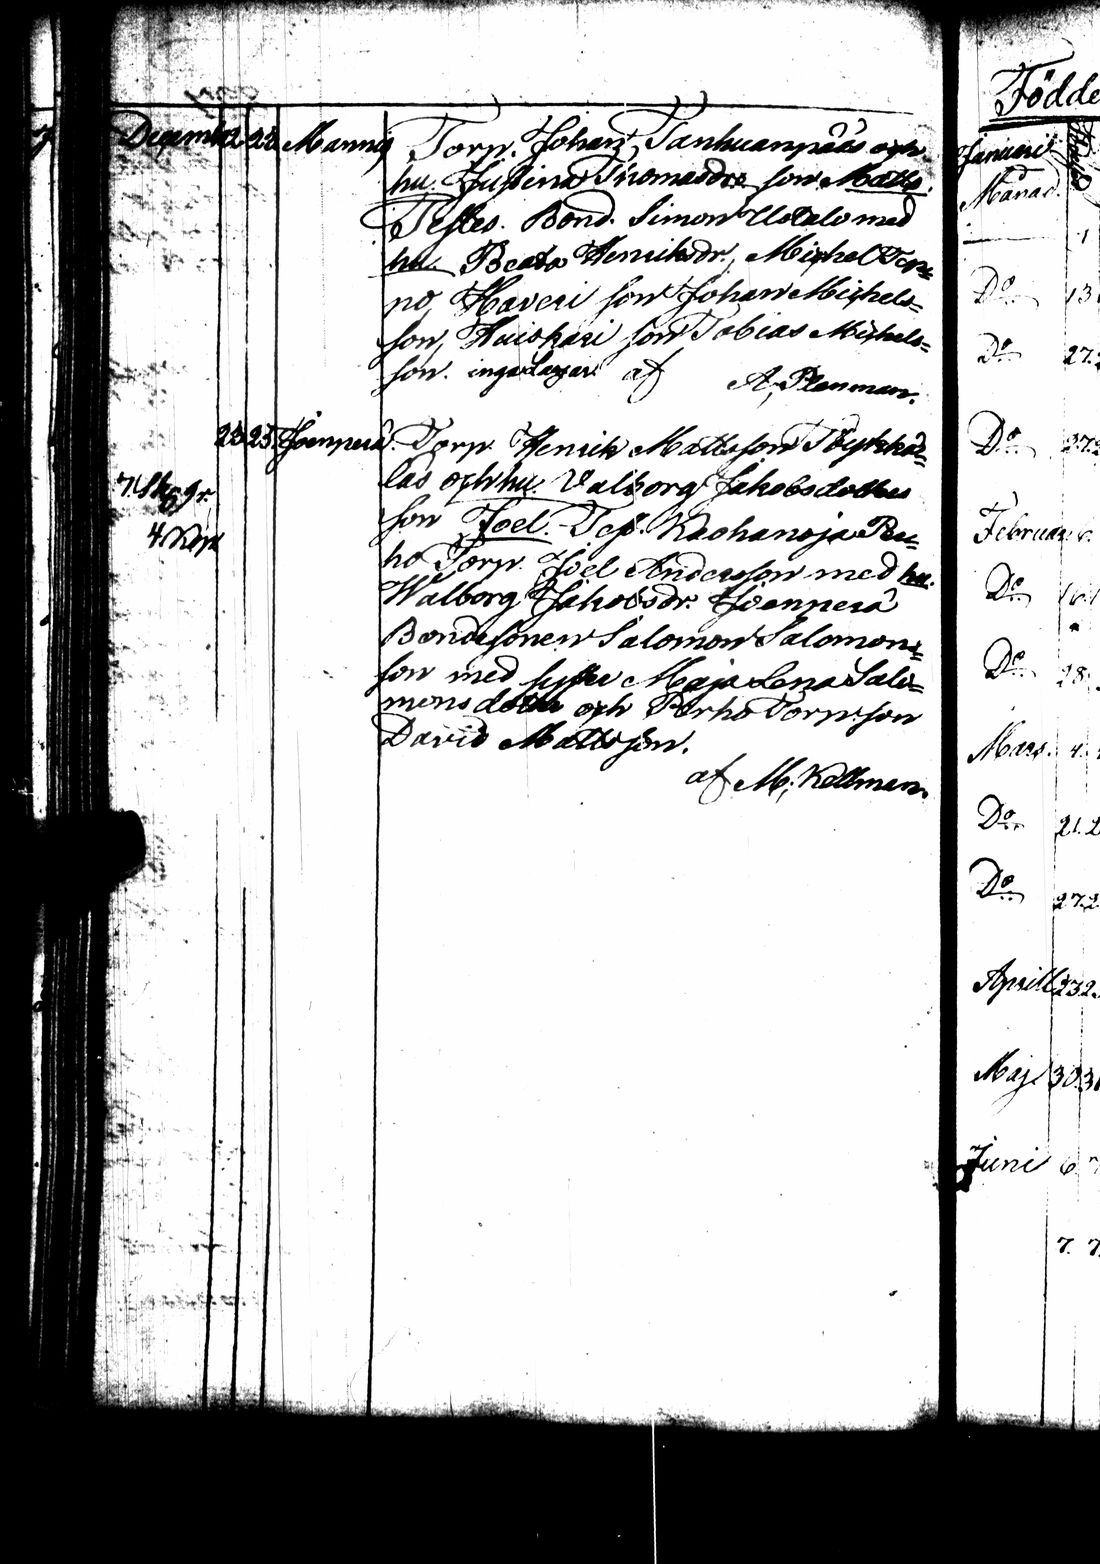 December 22 22 Mannis Torp. Johan Tanhuanpääs och
hu. Justina Thomasdr. son Matts.
Testes. Bond. Simon Uotalo med
hu. Beata Henriksdr., Michel
Haveri son Johan Michels=
son, son Tobias Michels=
son. af A, Plenman.
23 25 Joenperä. Torp. Henrik Mattsson
las och hu. Valborg Jakobsdotter
son Joel. Tes. Kaohanoja Per=
ho Torp. Joel Andersson med hu.
Walborg Jakobsdr. Joenperä
Bondesonen Salomon Salomons=
son med syster Maja Lena Salo=
monsdotter och Perho Torp. son
David Mattsson.
af M, Kellman.
4 Kop
Födde
Januari
Månad.
1
Do 13
Do 27.
Do 27.
Februari 6.
Do 16.
Do 28.
Mars. 4.
Do 21.
Do 27.
Aprill 23
Maj 30
Juni 6
7. 7.